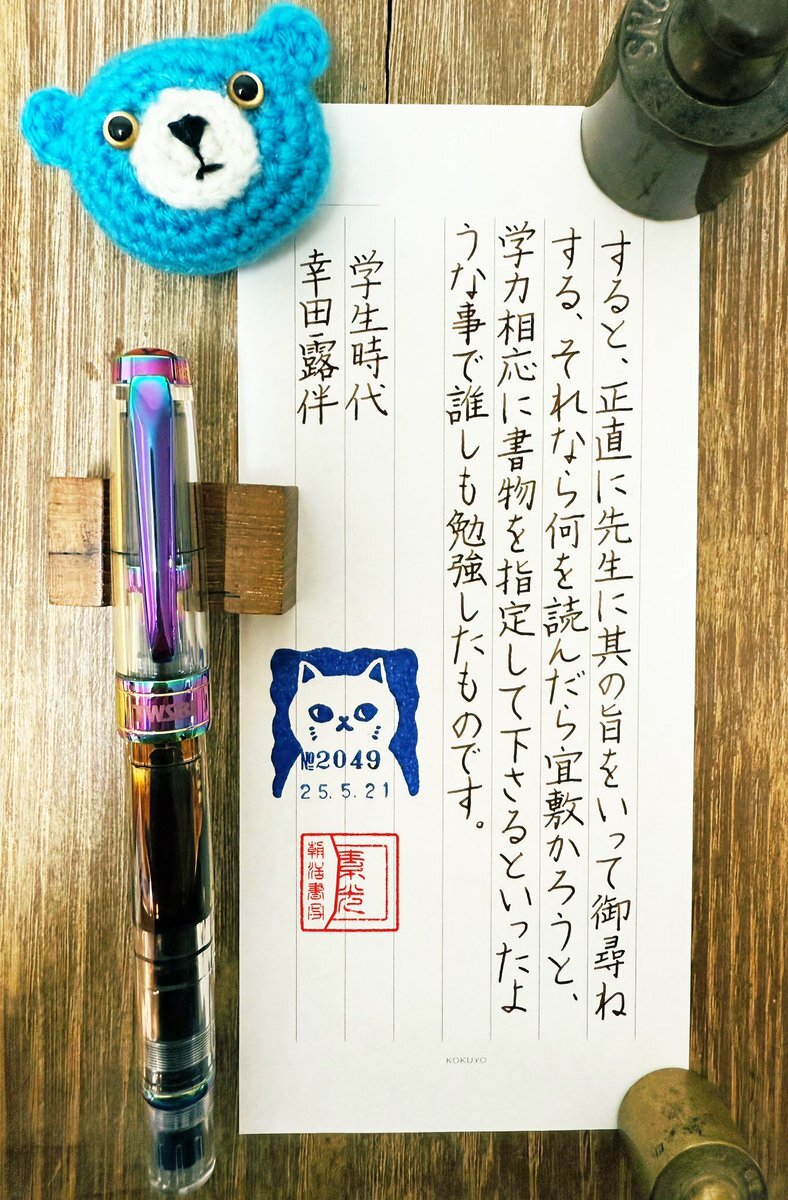 すると、正直に先生に其の旨をいって御尋ね
する、それなら何を読んだら宜敷かろうと、
学力相応に書物を指定して下さるといったよ
うな事で誰しも勉強したものです。
学生時代
幸田露伴
№2049
25.5.21
素光
朝活書写
KOKUYO
TWSBI